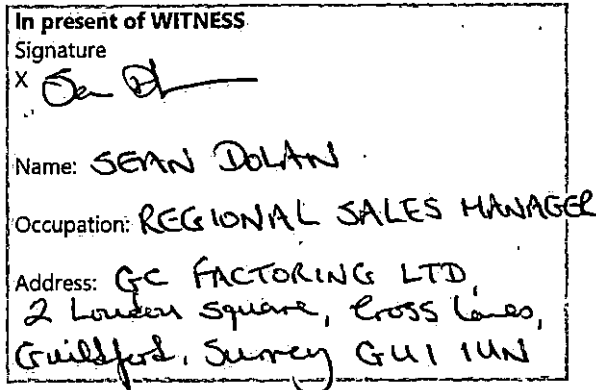 In present of WITNESS
Signature
X
Name: SEAN DOLAN
Occupation: REGIONAL SALES MANAGER
Address: GC FACTORING LTD,
2 London Square, Cross Lanes,
Guildford, Surrey GU1 1UN